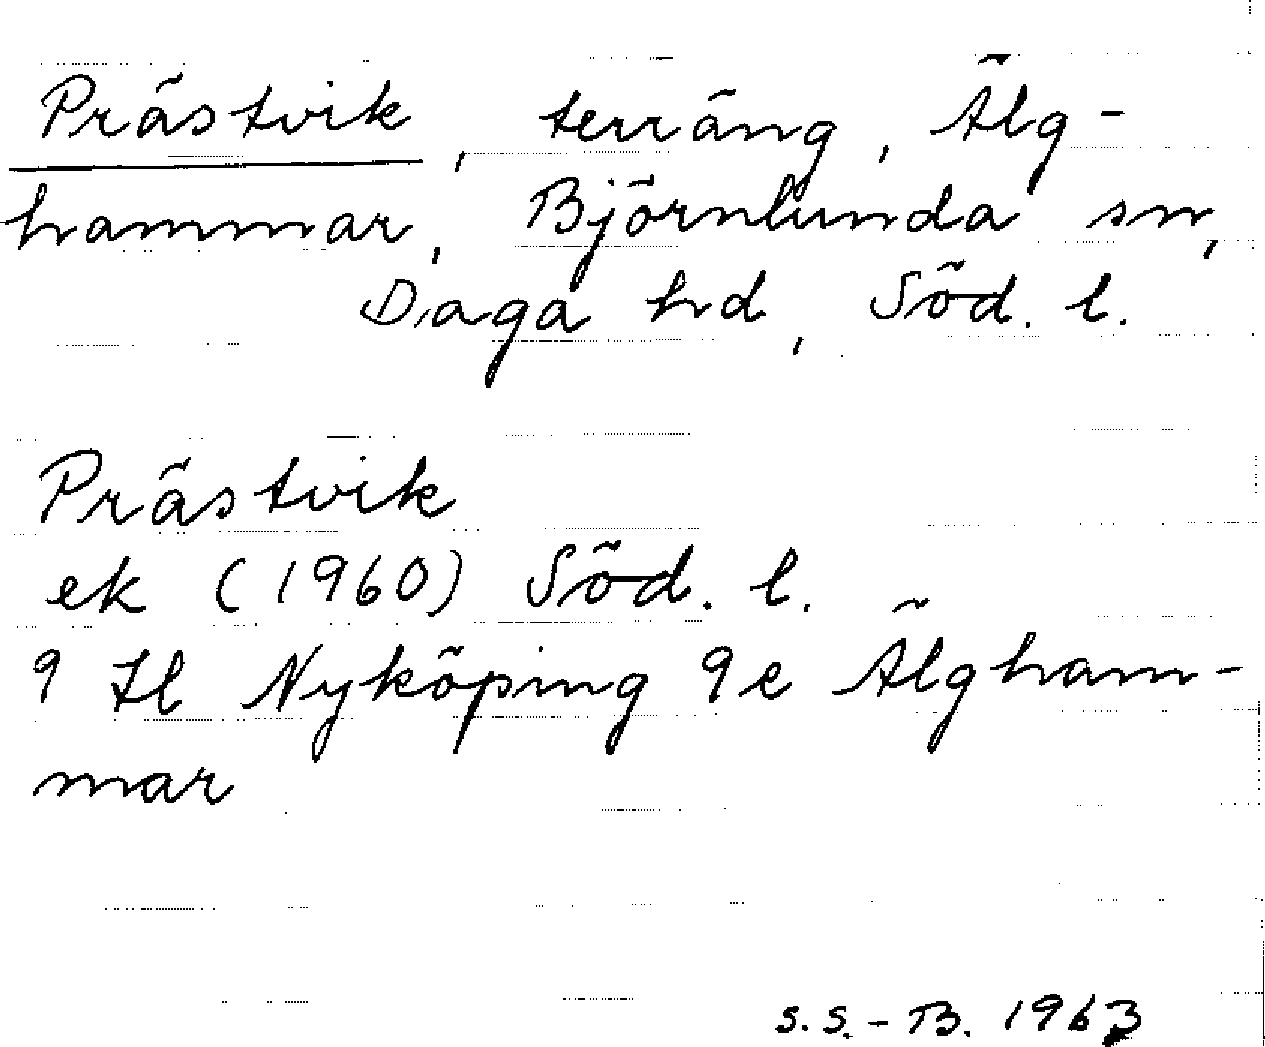 Prästvik, terräng, Älg-
hammar, Björnlunda sn,
Daga hd, Söd. l.
Prästvik
ek (1960) Söd. l.
9 H l Nyköping 9e Älgham-
mar
S.S.-B. 1963